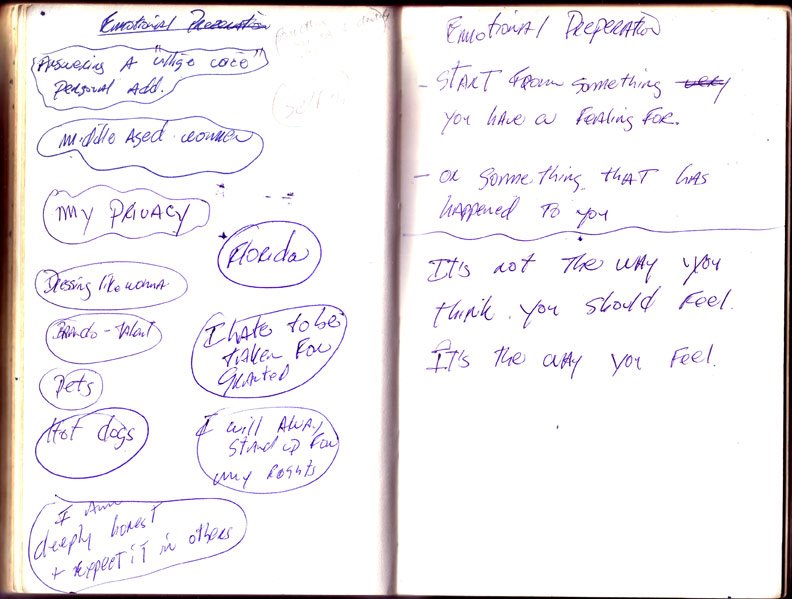 Emotional Preperation
Answering A "Village Voice"
personal Add.
middle Aged women
my PRIVACY
Florida
Dressing like woman
Brando - talent
I hate to be
taken For
Granted
Pets
Hot dogs
I will Alway
stand up For
my Rights
I Am
deeply honest
+ expect it in others
Emotional Preperation
- START From something very
you have a Fealing For.
- or something that has
happened to you
It's not the way you
think you should Feel.
It's the way you Feel.